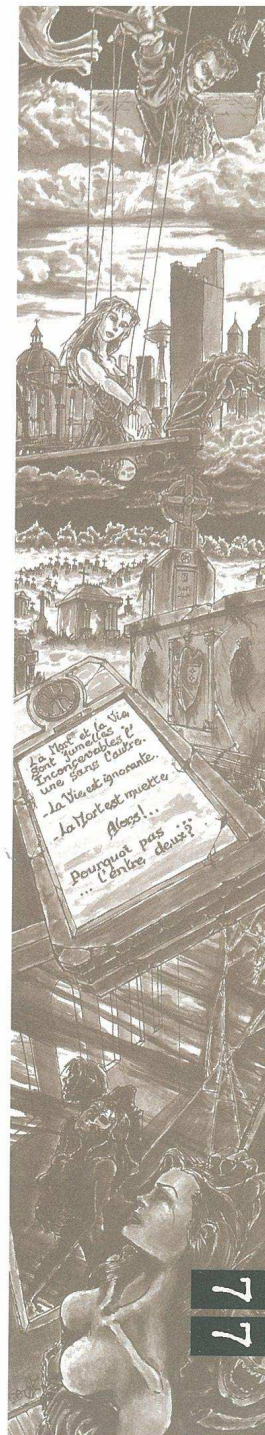 La Mort et la Vie,
sont jumelles
Inconcevables l'
une sans l'autre.
-La Vie est ignorante.
-La Mort est muette.
Alors!...
Pourquoi pas ...
... l'entre deux?
77